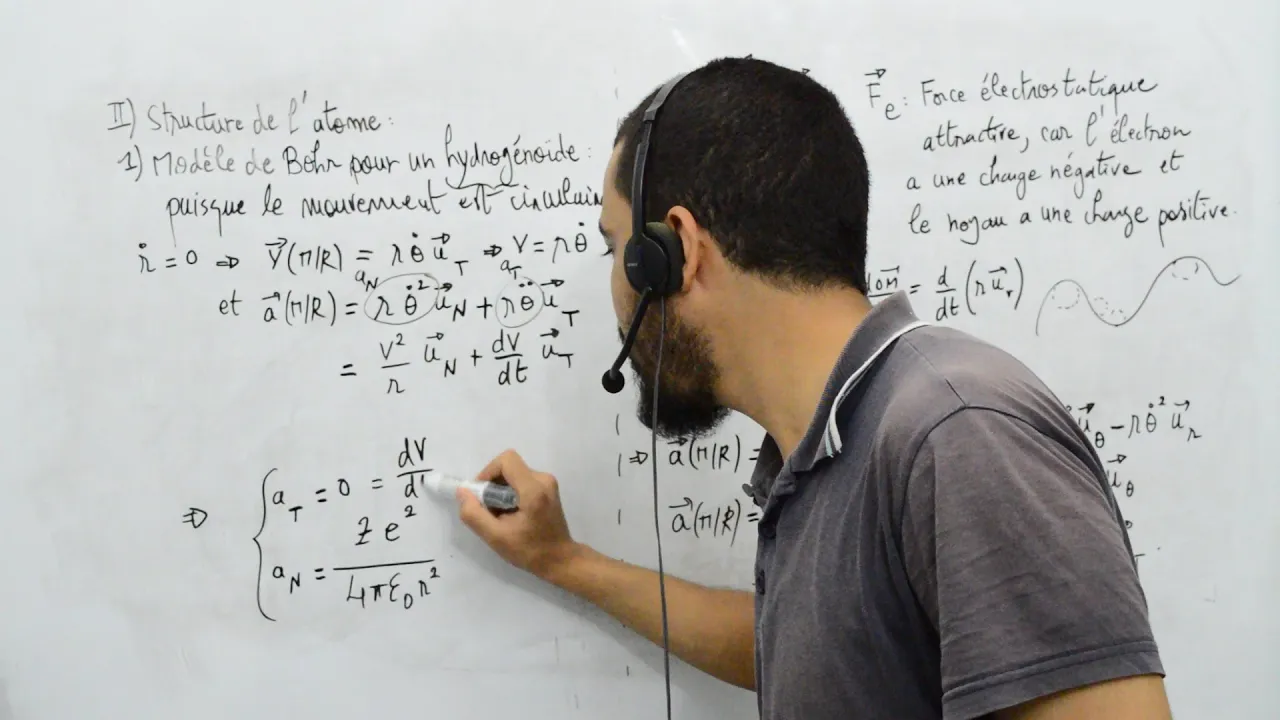 II) Structure de l'atome:
1) Modèle de Bohr pour un hydrogénoïde:
puisque le mouvement est circulair
ṙ = 0 ⇒ V⃗(M/R) = rθ̇ u⃗_T ⇒ V = rθ̇
a_N a_T
et a⃗(M/R) = rθ̇² u⃗_N + rθ̈ u⃗_T
= V²/r u⃗_N + dV/dt u⃗_T
⇒ { a_T = 0 = dV/d
a_N = Ze²/4πε₀r²
F⃗_e: Force électrostatique
attractive, car l'électron
a une charge négative et
le noyau a une charge positive.
dOM⃗ = d/dt (r u⃗_r)
u⃗_θ − rθ̇² u⃗_r
⇒ a⃗(M/R) =
u⃗_θ
a⃗(M/R) =